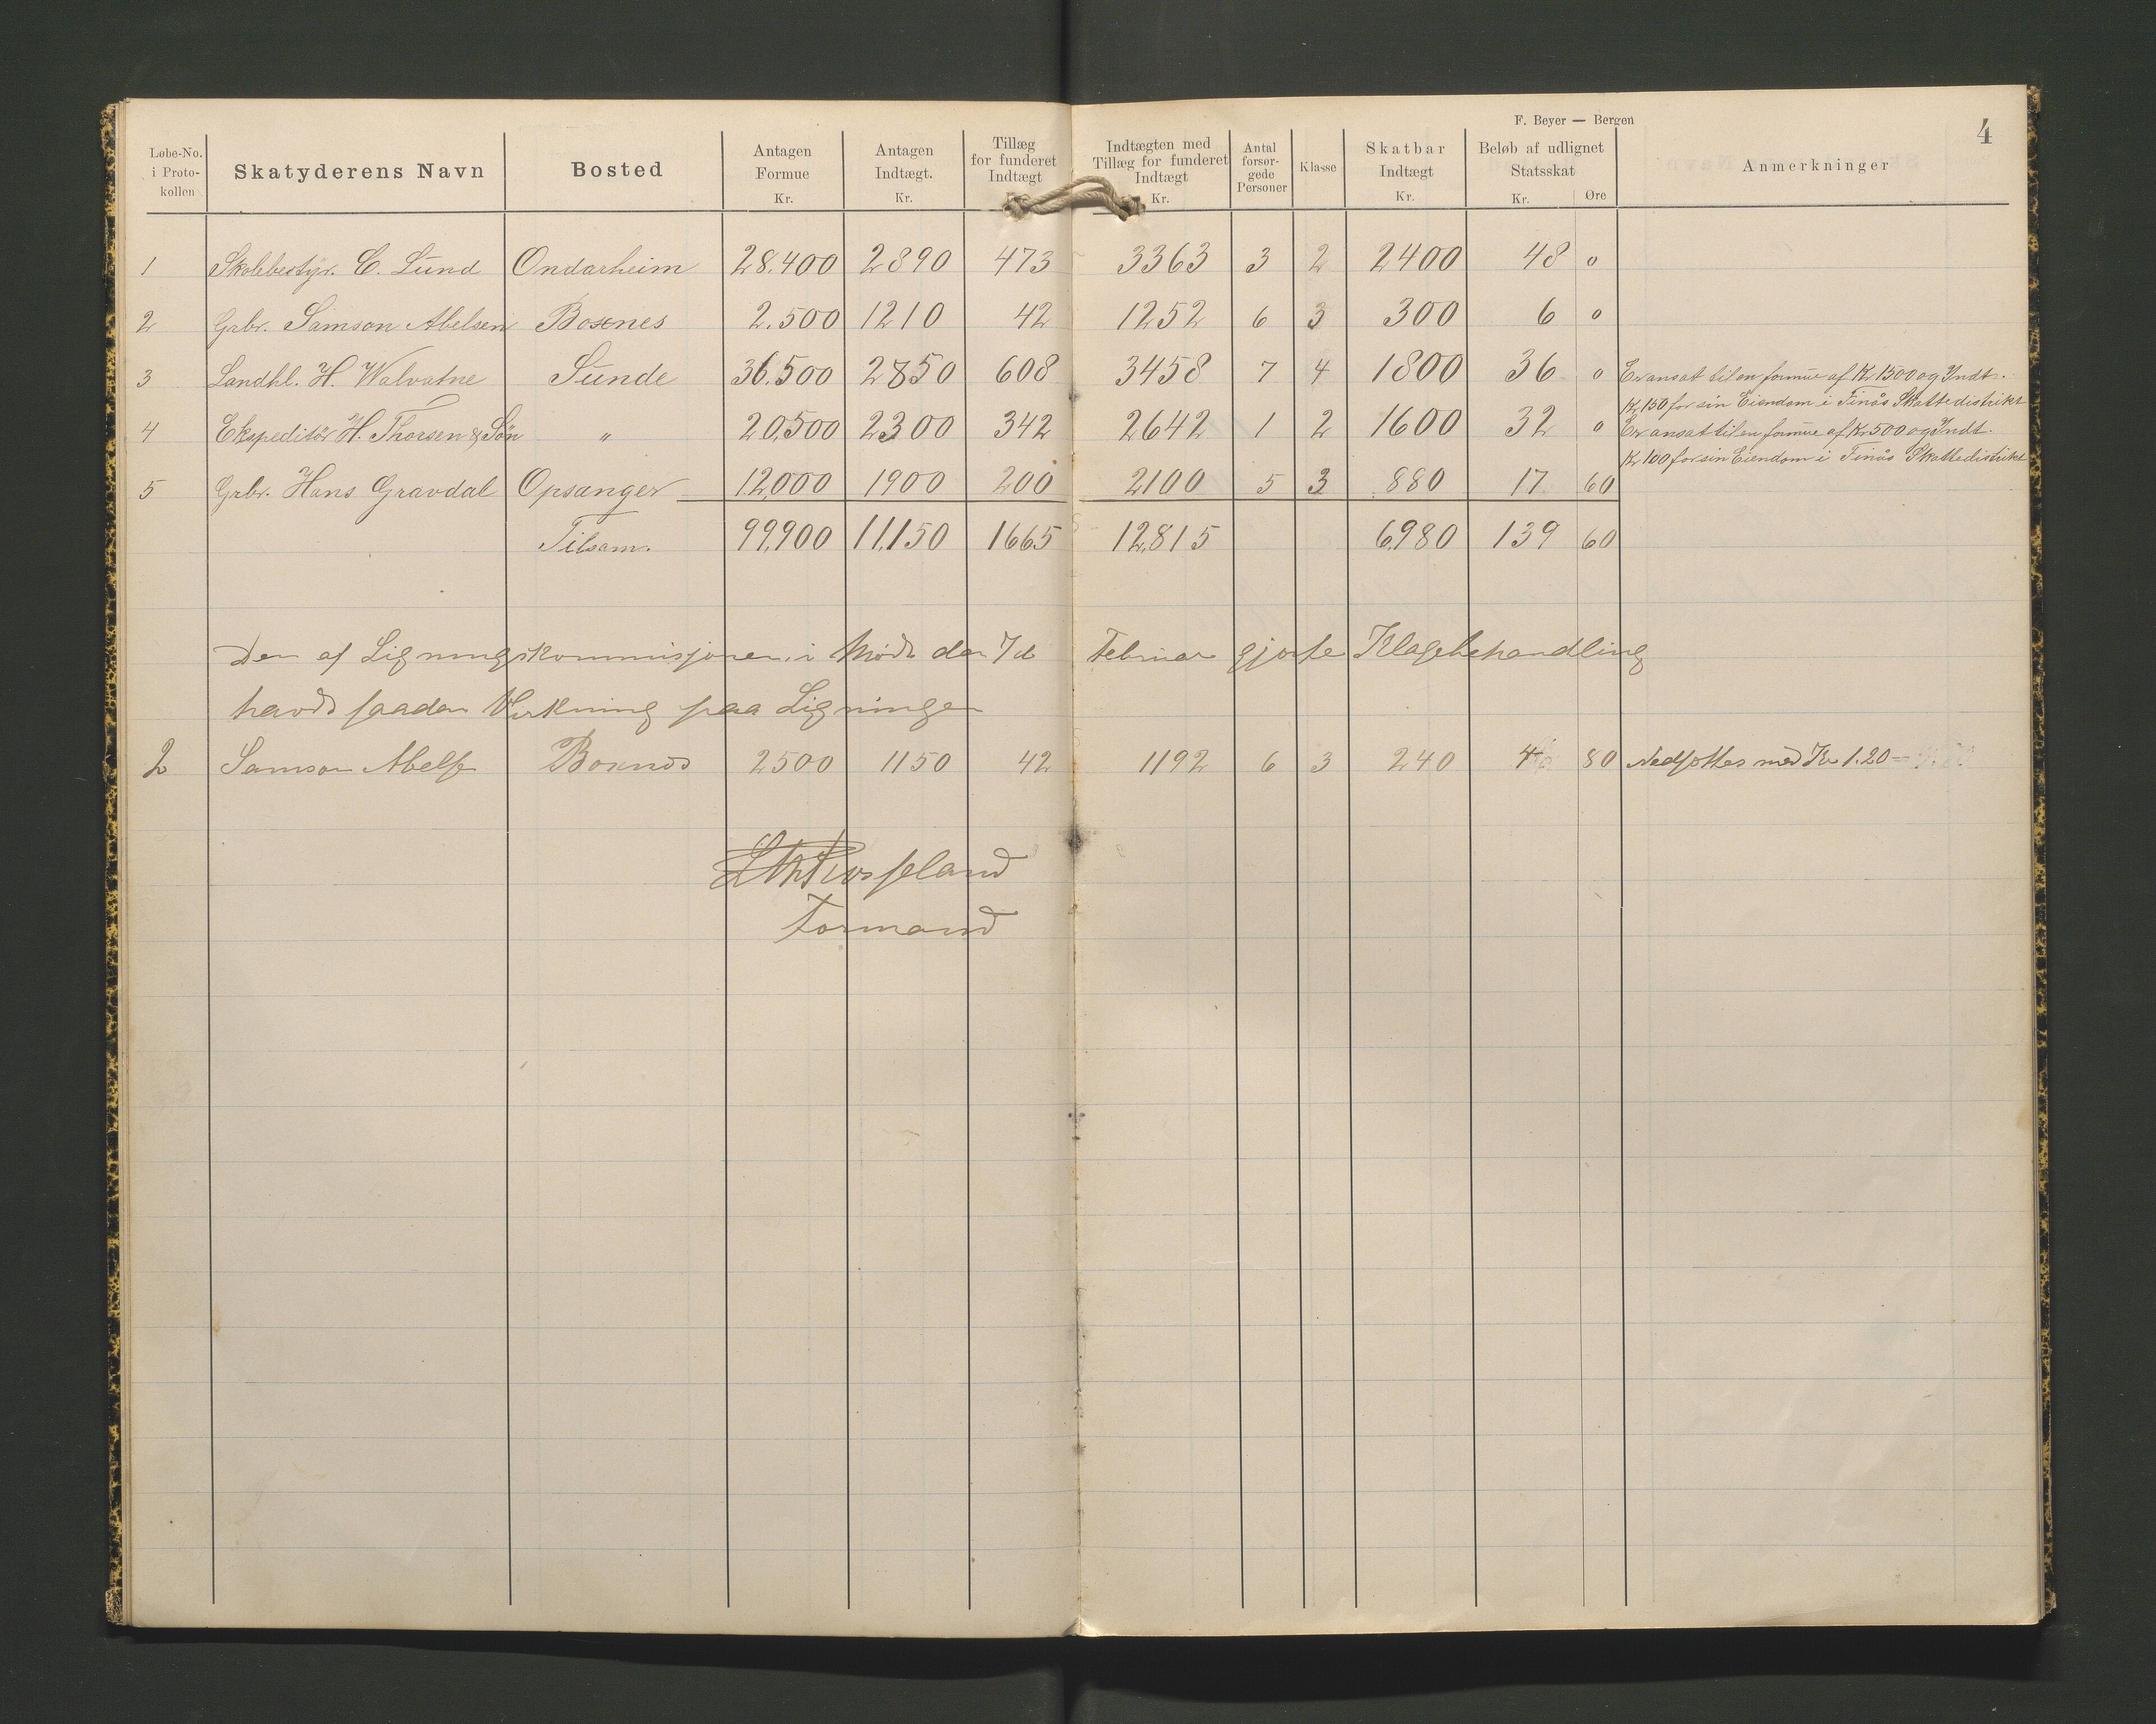 F. Beyer — Bergen
4
Løbe-No. i Proto-kollen Skatyderens Navn Bosted Antagen Formue Kr. Antagen Indtægt. Kr. Tillæg for funderet Indtægt Indtægten med Tillæg for funderet Indtægt Kr. Antal forsør-gede Personer Klasse Skatbar Indtægt Kr. Beløb af udlignet Statsskat Kr. Øre Anmerkninger
1 Skolebestyr. C. Lund Ondarheim 28.400 2890 473 3363 3 2 2400 48 0
2 Grbr. Samson Abelsen Boxnes 2.500 1210 42 1252 6 3 300 6 0
3 Landhl. H. Walvatne Sunde 36.500 2850 608 3458 7 4 1800 36 0 Er ansat til en formue af Kr 1500 og Indt.
Kr 150 for sin Eiendom i Finås Skattedistrikt
4 Ekspeditör H. Thorsen & Sön " 20,500 2300 342 2642 1 2 1600 32 0 Er ansat til en formue af Kr 500 og Indt.
Kr 100 for sin Eiendom i Finås Skattedistrikt
5 Grbr. Hans Gravdal Opsanger 12,000 1900 200 2100 5 3 880 17 60
Tilsam. 99,900 11,150 1665 12,815 6,980 139 60
Den af Ligningskommisjonen i Møde den 7de Februar gjorte Klagebehandling
havde saadan Virkning paa Ligningen
2 Samson Abelse Boxnes 2500 1150 42 1192 6 3 240 4 80 Nedsættes med Kr 1.20
Formand